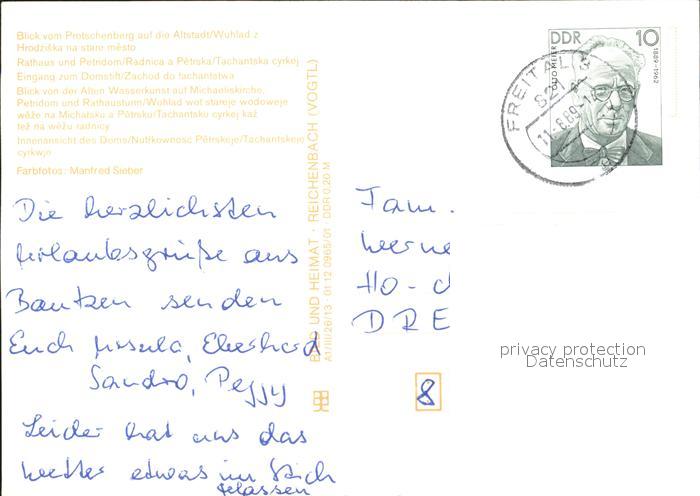 Blick vom Protschenberg auf die Altstadt/Wuhlad z
Hrodźiška na stare město
Rathaus und Petridom/Radnica a Pětrska/Tachantska cyrkej
Eingang zum Domstift/Zachod do tachantstwa
Blick von der Alten Wasserkunst auf Michaeliskirche,
Petridom und Rathausturm/Wohlad wot stareje wodoweje
wěže na Michałsku a Pětrsku/Tachantsku cyrkej kaž
tež na wěžu radnicy
Innenansicht des Doms/Nutřkownosć Pětrskeje/Tachantskeje
cyrkwje
Farbfotos: Manfred Sieber
Die herzlichsten
Urlaubsgrüße aus
Bautzen senden
Euch Ursula, Eberhard
Sandro, Peggy
Leider hat uns das
Wetter etwas im Stich
gelassen
BILD UND HEIMAT · REICHENBACH (VOGTL)
A1/III/26/13 · 01 12 0965/01 DDR 0,20 M
DDR 10
OTTO MEIER
1889-1962
FREITAL
821
11.-8.89
Fam.
Werne
Ho-
DRE
8
privacy protection
Datenschutz